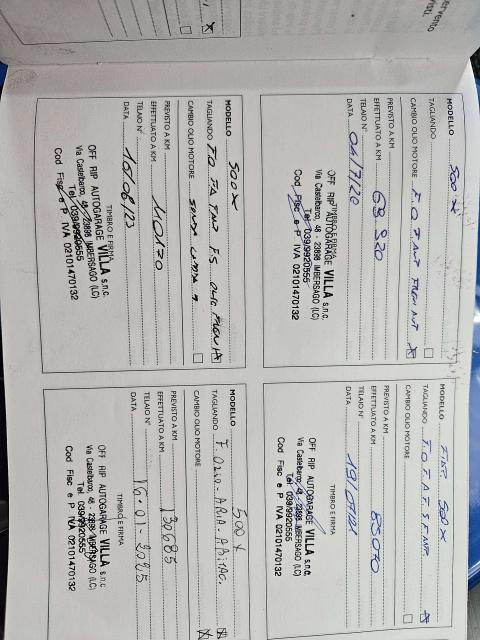 MODELLO 500 X
TAGLIANDO
CAMBIO OLIO MOTORE
PREVISTO A KM
EFFETTUATO A KM 68 920
TELAIO N°
DATA 04/7/20
TIMBRO E FIRMA
OFF RIP AUTOGARAGE VILLA s.n.c.
Via Castelbarco, 48 - 23898 IMBERSAGO (LC)
Tel. 039/9920555
Cod Fisc e P IVA 02101470132
MODELLO FIAT 500X
TAGLIANDO
CAMBIO OLIO MOTORE
PREVISTO A KM
EFFETTUATO A KM 85070
TELAIO N°
DATA 19/07/21
TIMBRO E FIRMA
OFF RIP AUTOGARAGE VILLA s.n.c.
Via Castelbarco, 48 - 23898 IMBERSAGO (LC)
Tel 039/9920555
Cod Fisc e P IVA 02101470132
MODELLO 500 X
TAGLIANDO
CAMBIO OLIO MOTORE
PREVISTO A KM
EFFETTUATO A KM 110170
TELAIO N°
DATA 16/06/23
TIMBRO E FIRMA
OFF RIP AUTOGARAGE VILLA s.n.c.
Via Castelbarco, 48 - 23898 IMBERSAGO (LC)
Tel 039/9920555
Cod Fisc e P IVA 02101470132
MODELLO 500 X
TAGLIANDO F. OLIO - ARIA - ABITAC.
CAMBIO OLIO MOTORE
PREVISTO A KM
EFFETTUATO A KM 130685
TELAIO N°
DATA 16-01-2025
TIMBRO E FIRMA
OFF RIP AUTOGARAGE VILLA s.n.c.
Via Castelbarco, 48 - 23898 IMBERSAGO (LC)
Tel 039/9920555
Cod Fisc e P IVA 02101470132